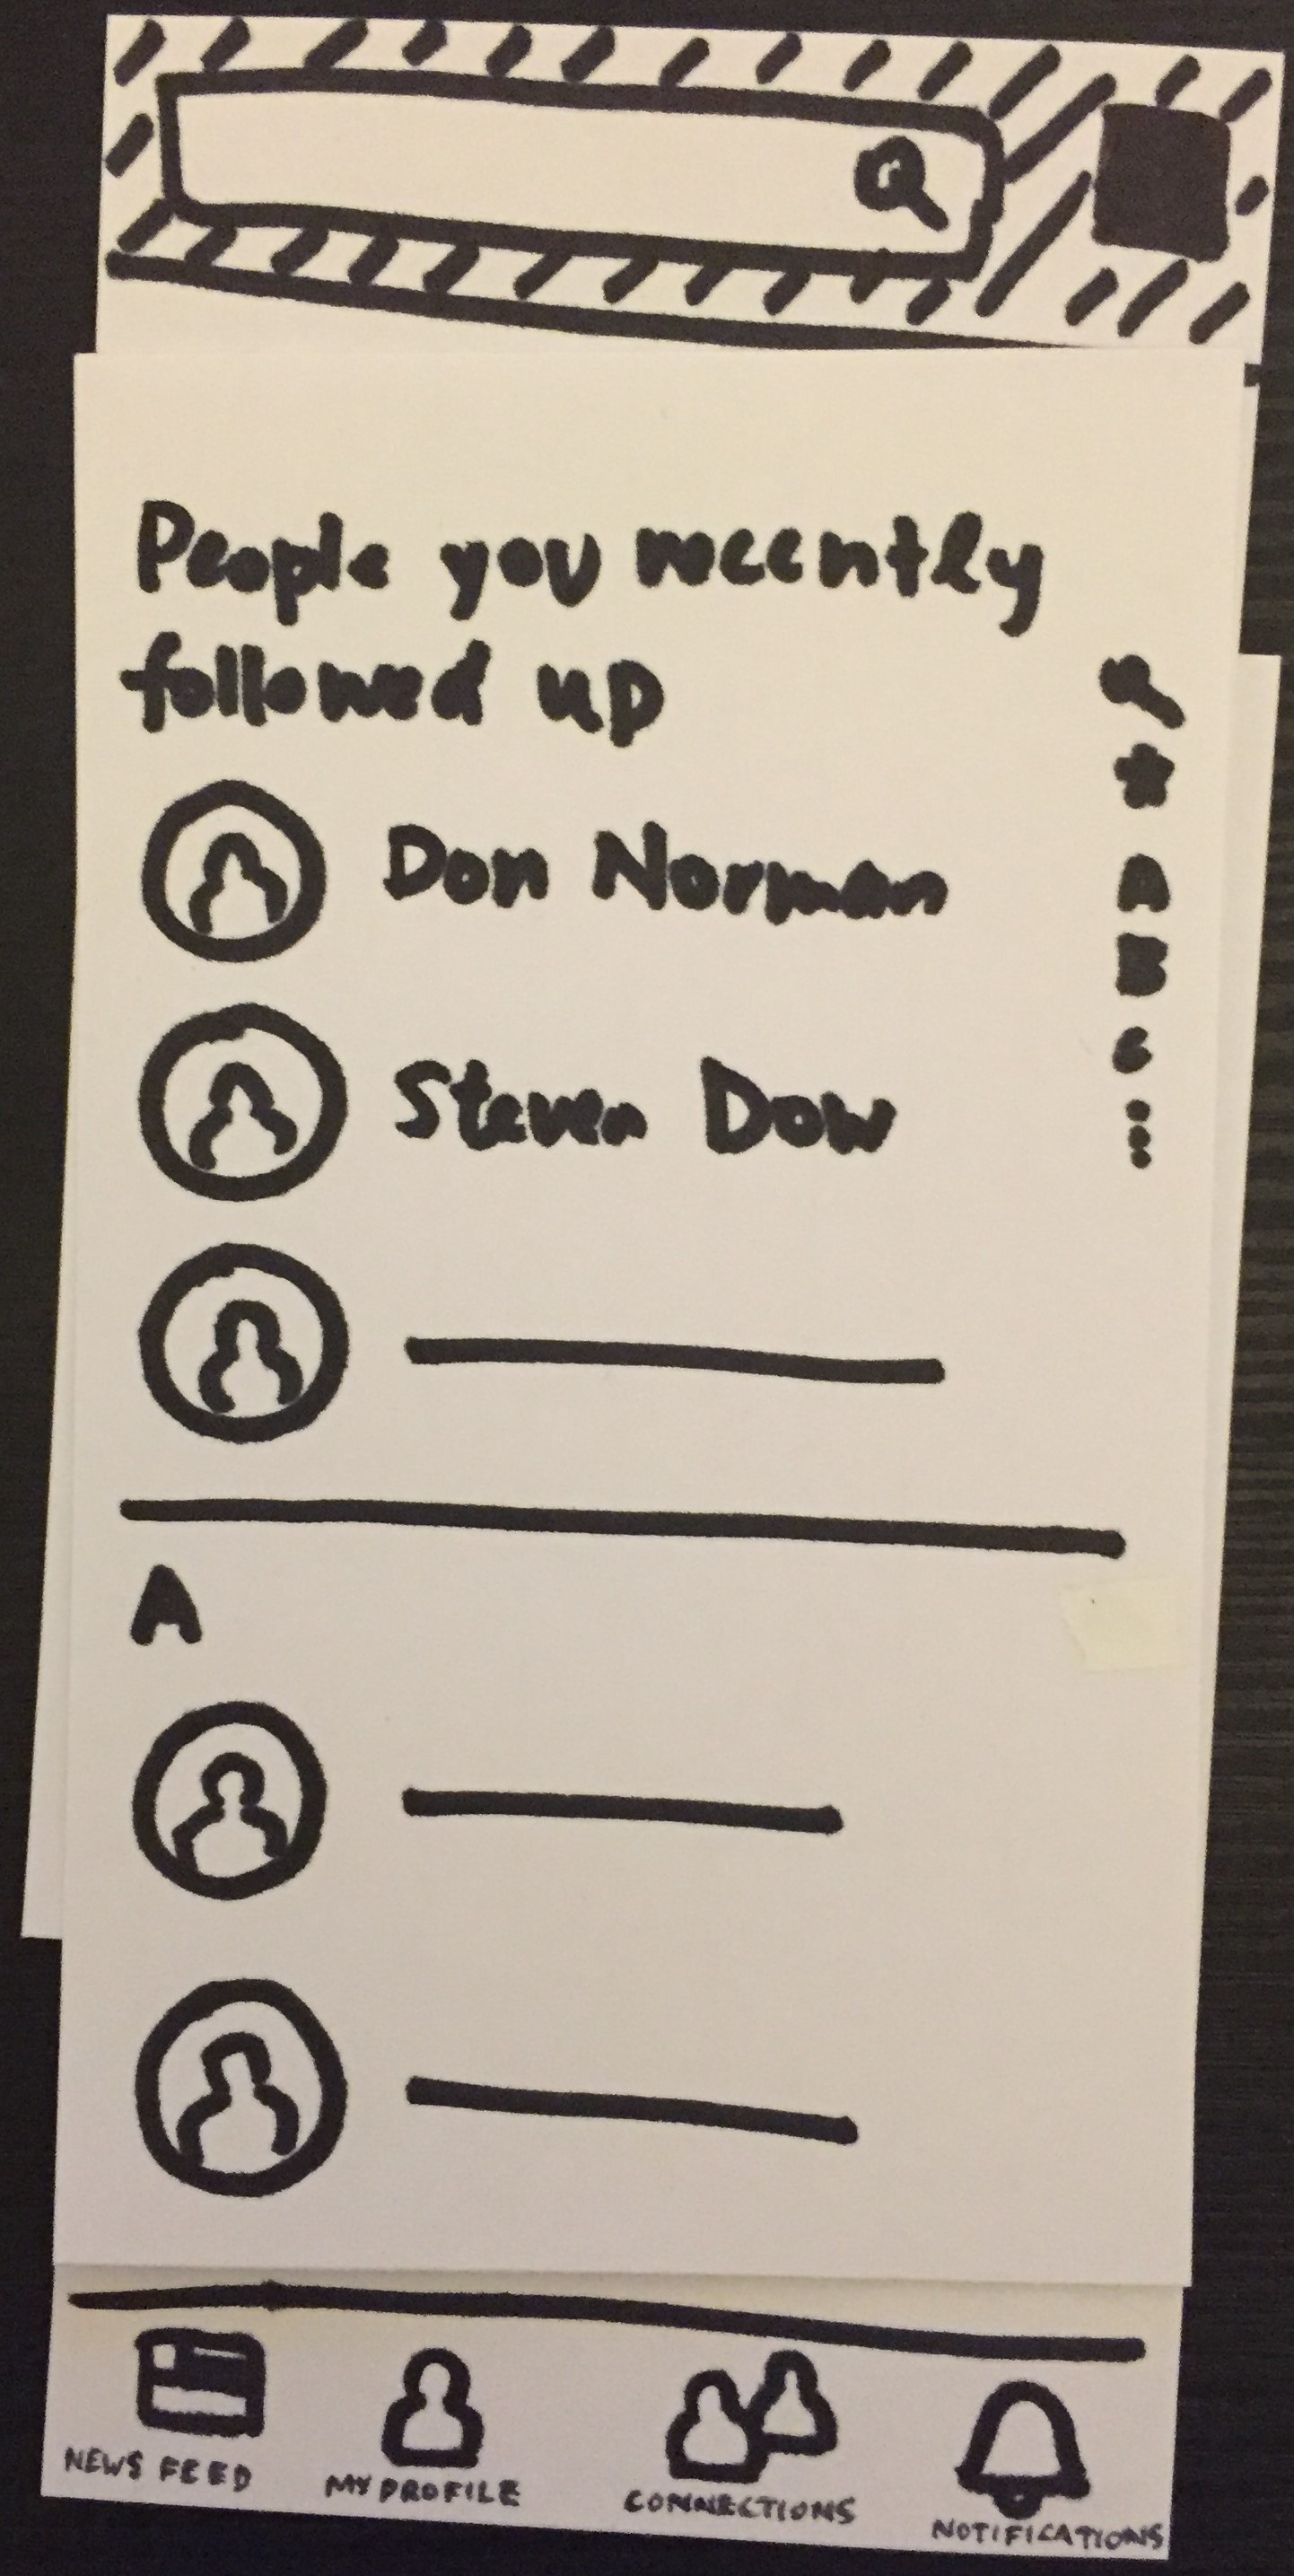 People you recently
followed up
Don Norman
Steven Dow
A
B
C
A
NEWS FEED
MY PROFILE
CONNECTIONS
NOTIFICATIONS